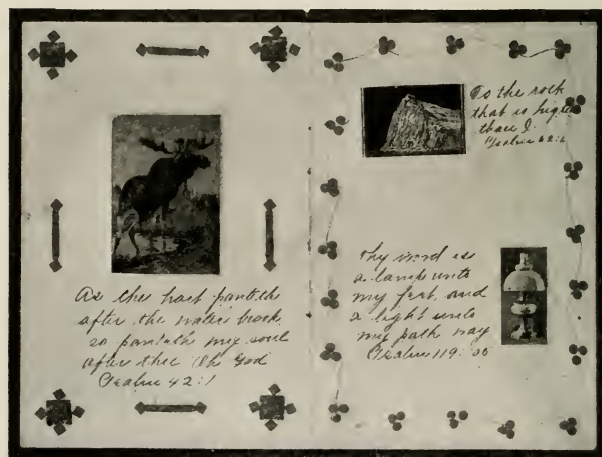 As the hart panteth
after the water brook
so panteth my soul
after thee Oh God
Psalm 42:1
To the rock
that is higher
than I.
Psalm 62:2
Thy word is
a lamp unto
my feet and
a light unto
my path way
Psalm 119: